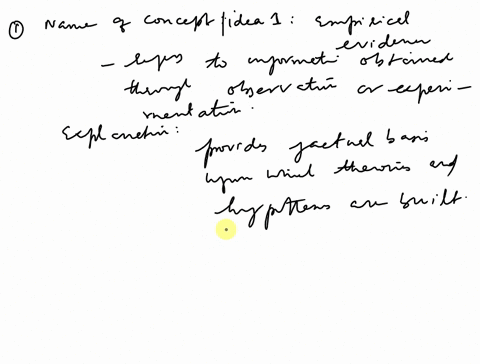 ① Name of concept/idea 1: Empirical
evidence
- refers to information obtained
through observation or experi-
mentation.
Explanation:
provides factual basis
upon which theories and
hypotheses are built.